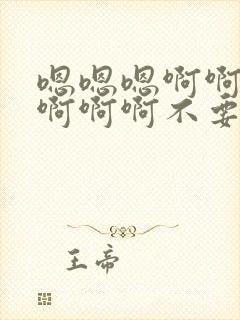 嗯嗯嗯啊啊
啊啊啊不要
王帝